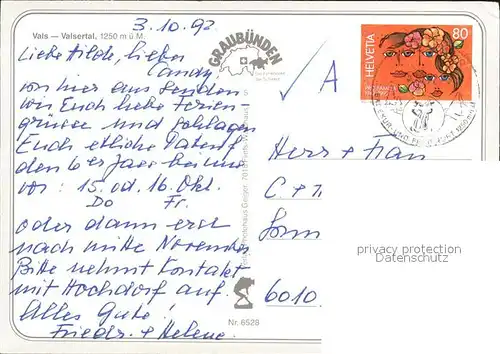 Vals — Valsertal, 1250 m ü. M.
3.10.92
Liebe Hilde, lieber
Candy
von hier aus senden
wir Euch liebe Ferien-
grüsse und schlagen
Euch etliche Daten f.
den 6er Jass bei uns
vor: 15. od. 16. Okt.
Do Fr.
oder dann erst
nach mitte November
Bitte nehmt Kontakt
mit Hochdorf auf.
Alles Gute!
Friedr. + Helene
GRAUBÜNDEN
A
HELVETIA
80
Herr + Frau
C + 
6010
Nr. 6528
privacy protection
Datenschutz